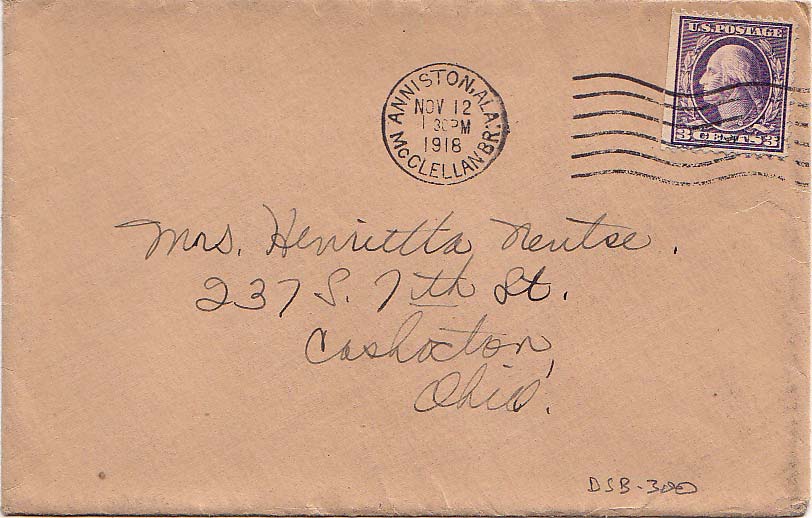 U.S. POSTAGE
3 CENTS 3
ANNISTON, ALA.
NOV 12
1 30PM
1918
MCCLELLAN BR.
Mrs. Henrietta Nentse.
237 S. 7th St.
Coshocton,
Ohio.
DSB-300